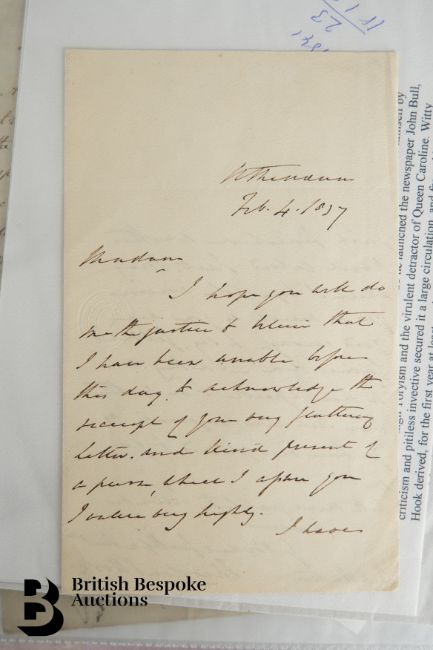 Athenaeum
Feb. 4. 1837
Madam
I hope you will do
me the justice to believe that
I have been unable before
this day, to acknowledge the
receipt of your very flattering
letter, and kind present of
a purse, which I assure you
I value very highly.
I have
23
launched the newspaper John Bull,
Toryism and the virulent detractor of Queen Caroline. Witty
criticism and pitiless invective secured it a large circulation, and
Hook derived, for the first year at least
British Bespoke
Auctions